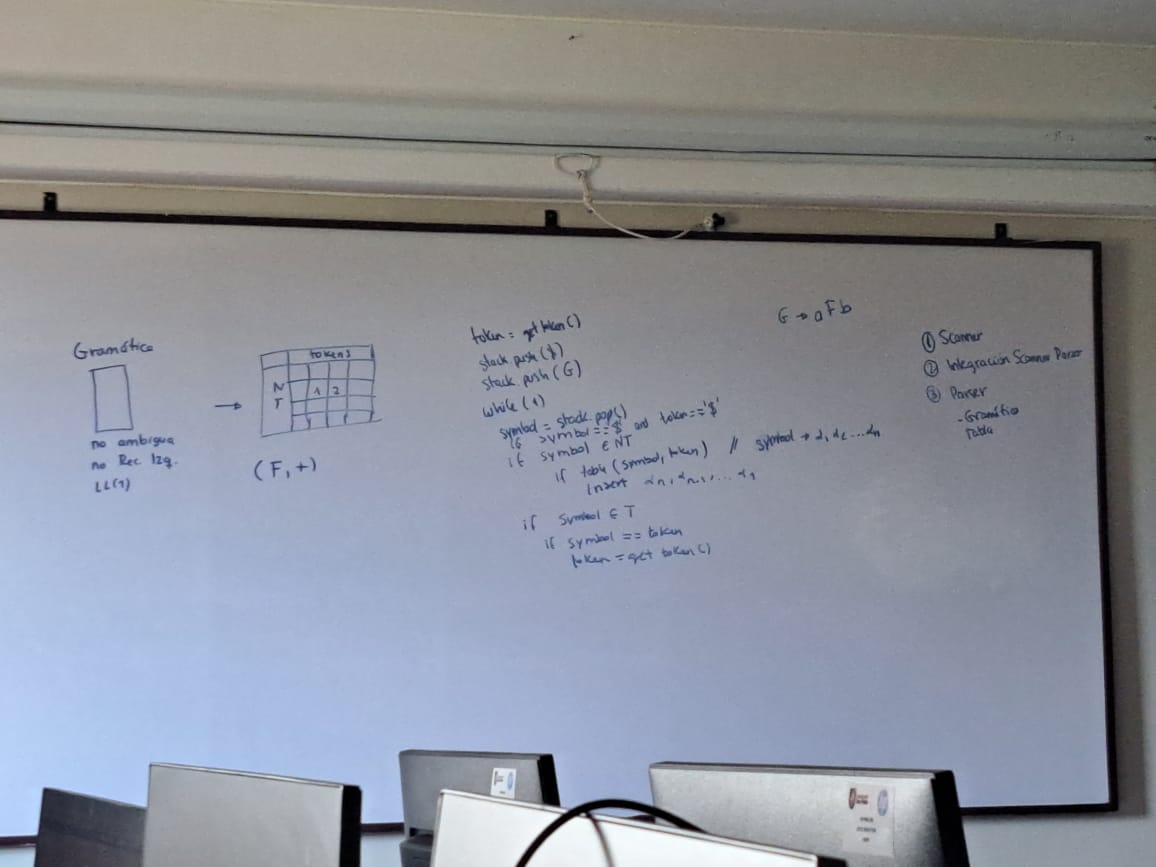 Gramática
no ambigua
no Rec. Izq.
LL(1)
→
tokens
N
T
1 2
(F, +)
token = get token()
stack.push($)
stack.push(G)
while (1)
symbol = stack.pop()
if symbol == '$' and token == '$'
if symbol ∈ NT
if tabla (symbol, token) // symbol → α₁ α₂ ... αₙ
insert αₙ, αₙ₋₁, ... α₁
if symbol ∈ T
if symbol == token
token = get token()
G → a F b
① Scanner
② Integración Scanner Parser
③ Parser
- Gramática
Tabla